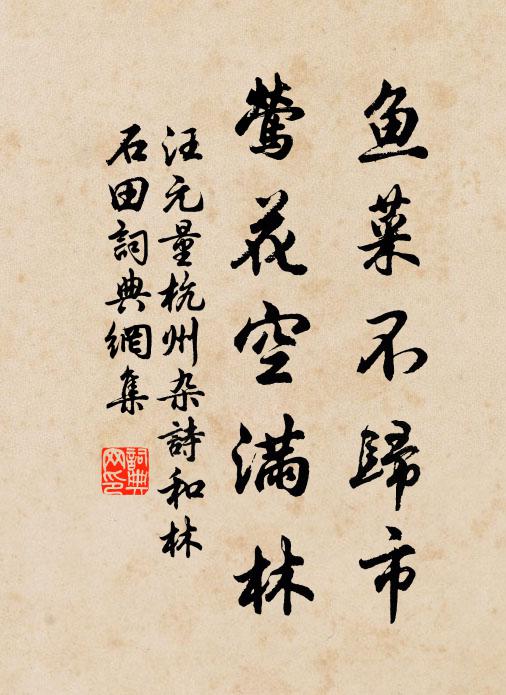 鱼菜不歸市
鶯花空满林
汪元量杭州杂詩和林
石田詞典網集
詞典
网印